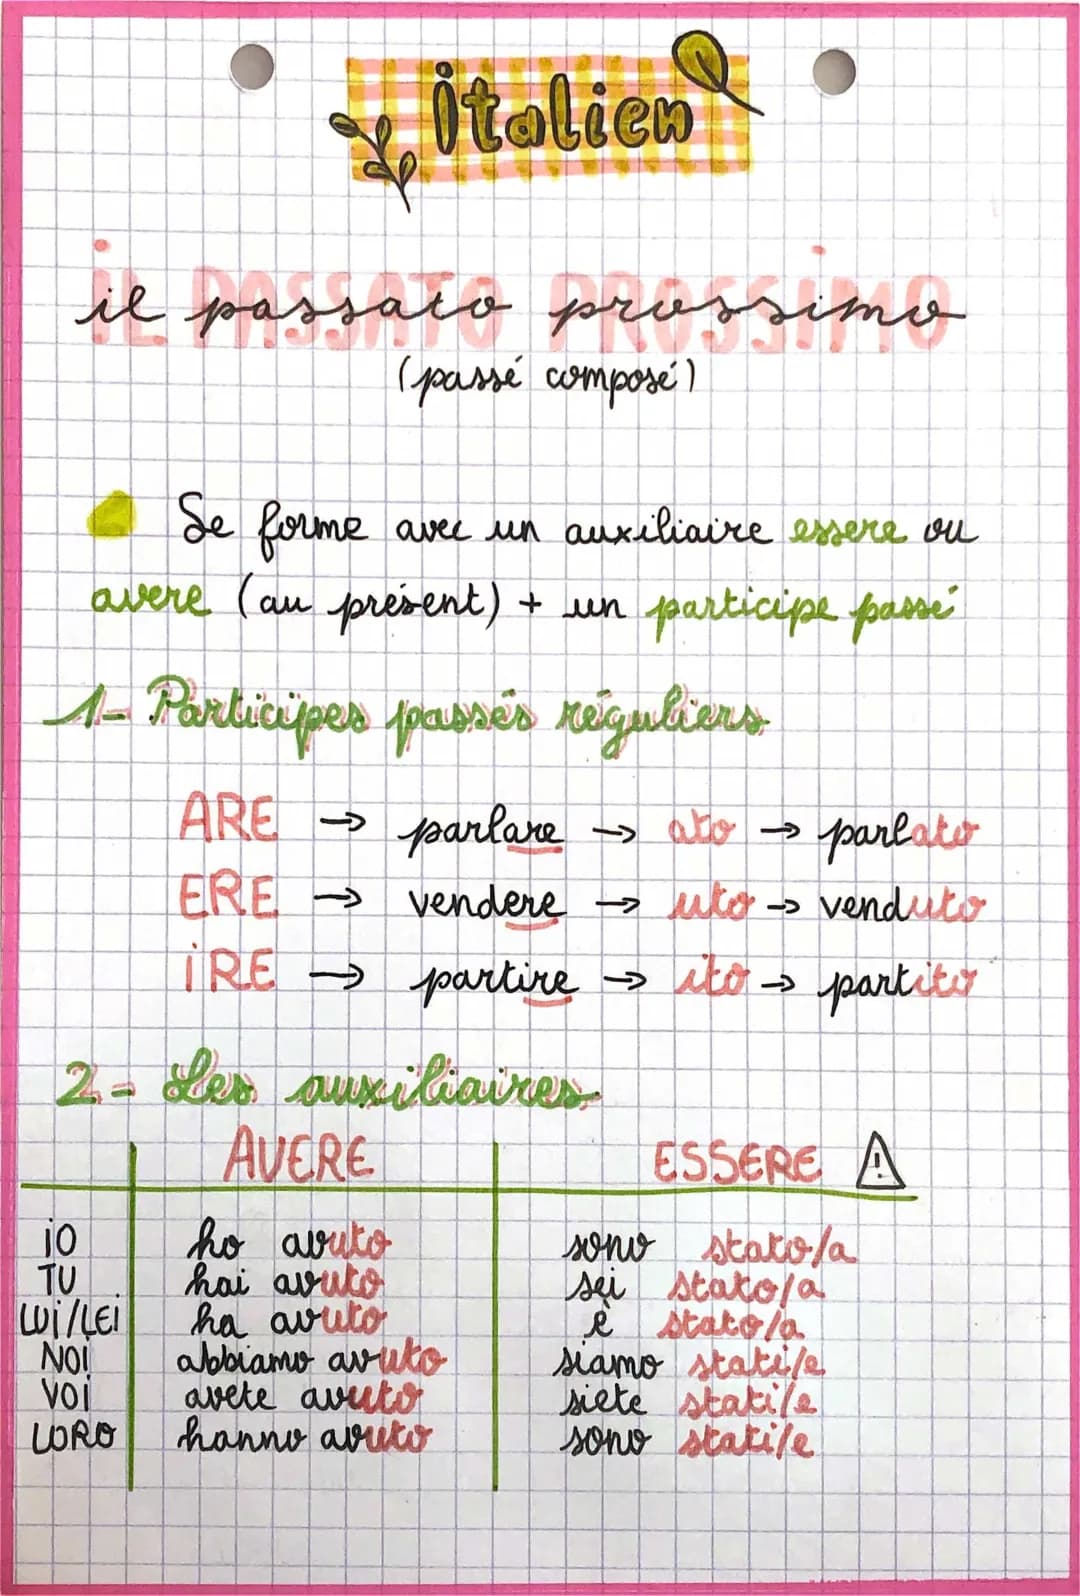 italien
il passato prossimo
(passé composé)
Se forme avec un auxiliaire essere ou
avere (au présent) + un participe passé
1- Participes passés réguliers
ARE → parlare → ato → parlato
ERE → vendere → uto → venduto
iRE → partire → ito → partito
2- Les auxiliaires
AVERE ESSERE
iO ho avuto sono stato/a
TU hai avuto sei stato/a
LUi/LEi ha avuto è stato/a
NOi abbiamo avuto siamo stati/e
VOi avete avuto siete stati/e
LORO hanno avuto sono stati/e